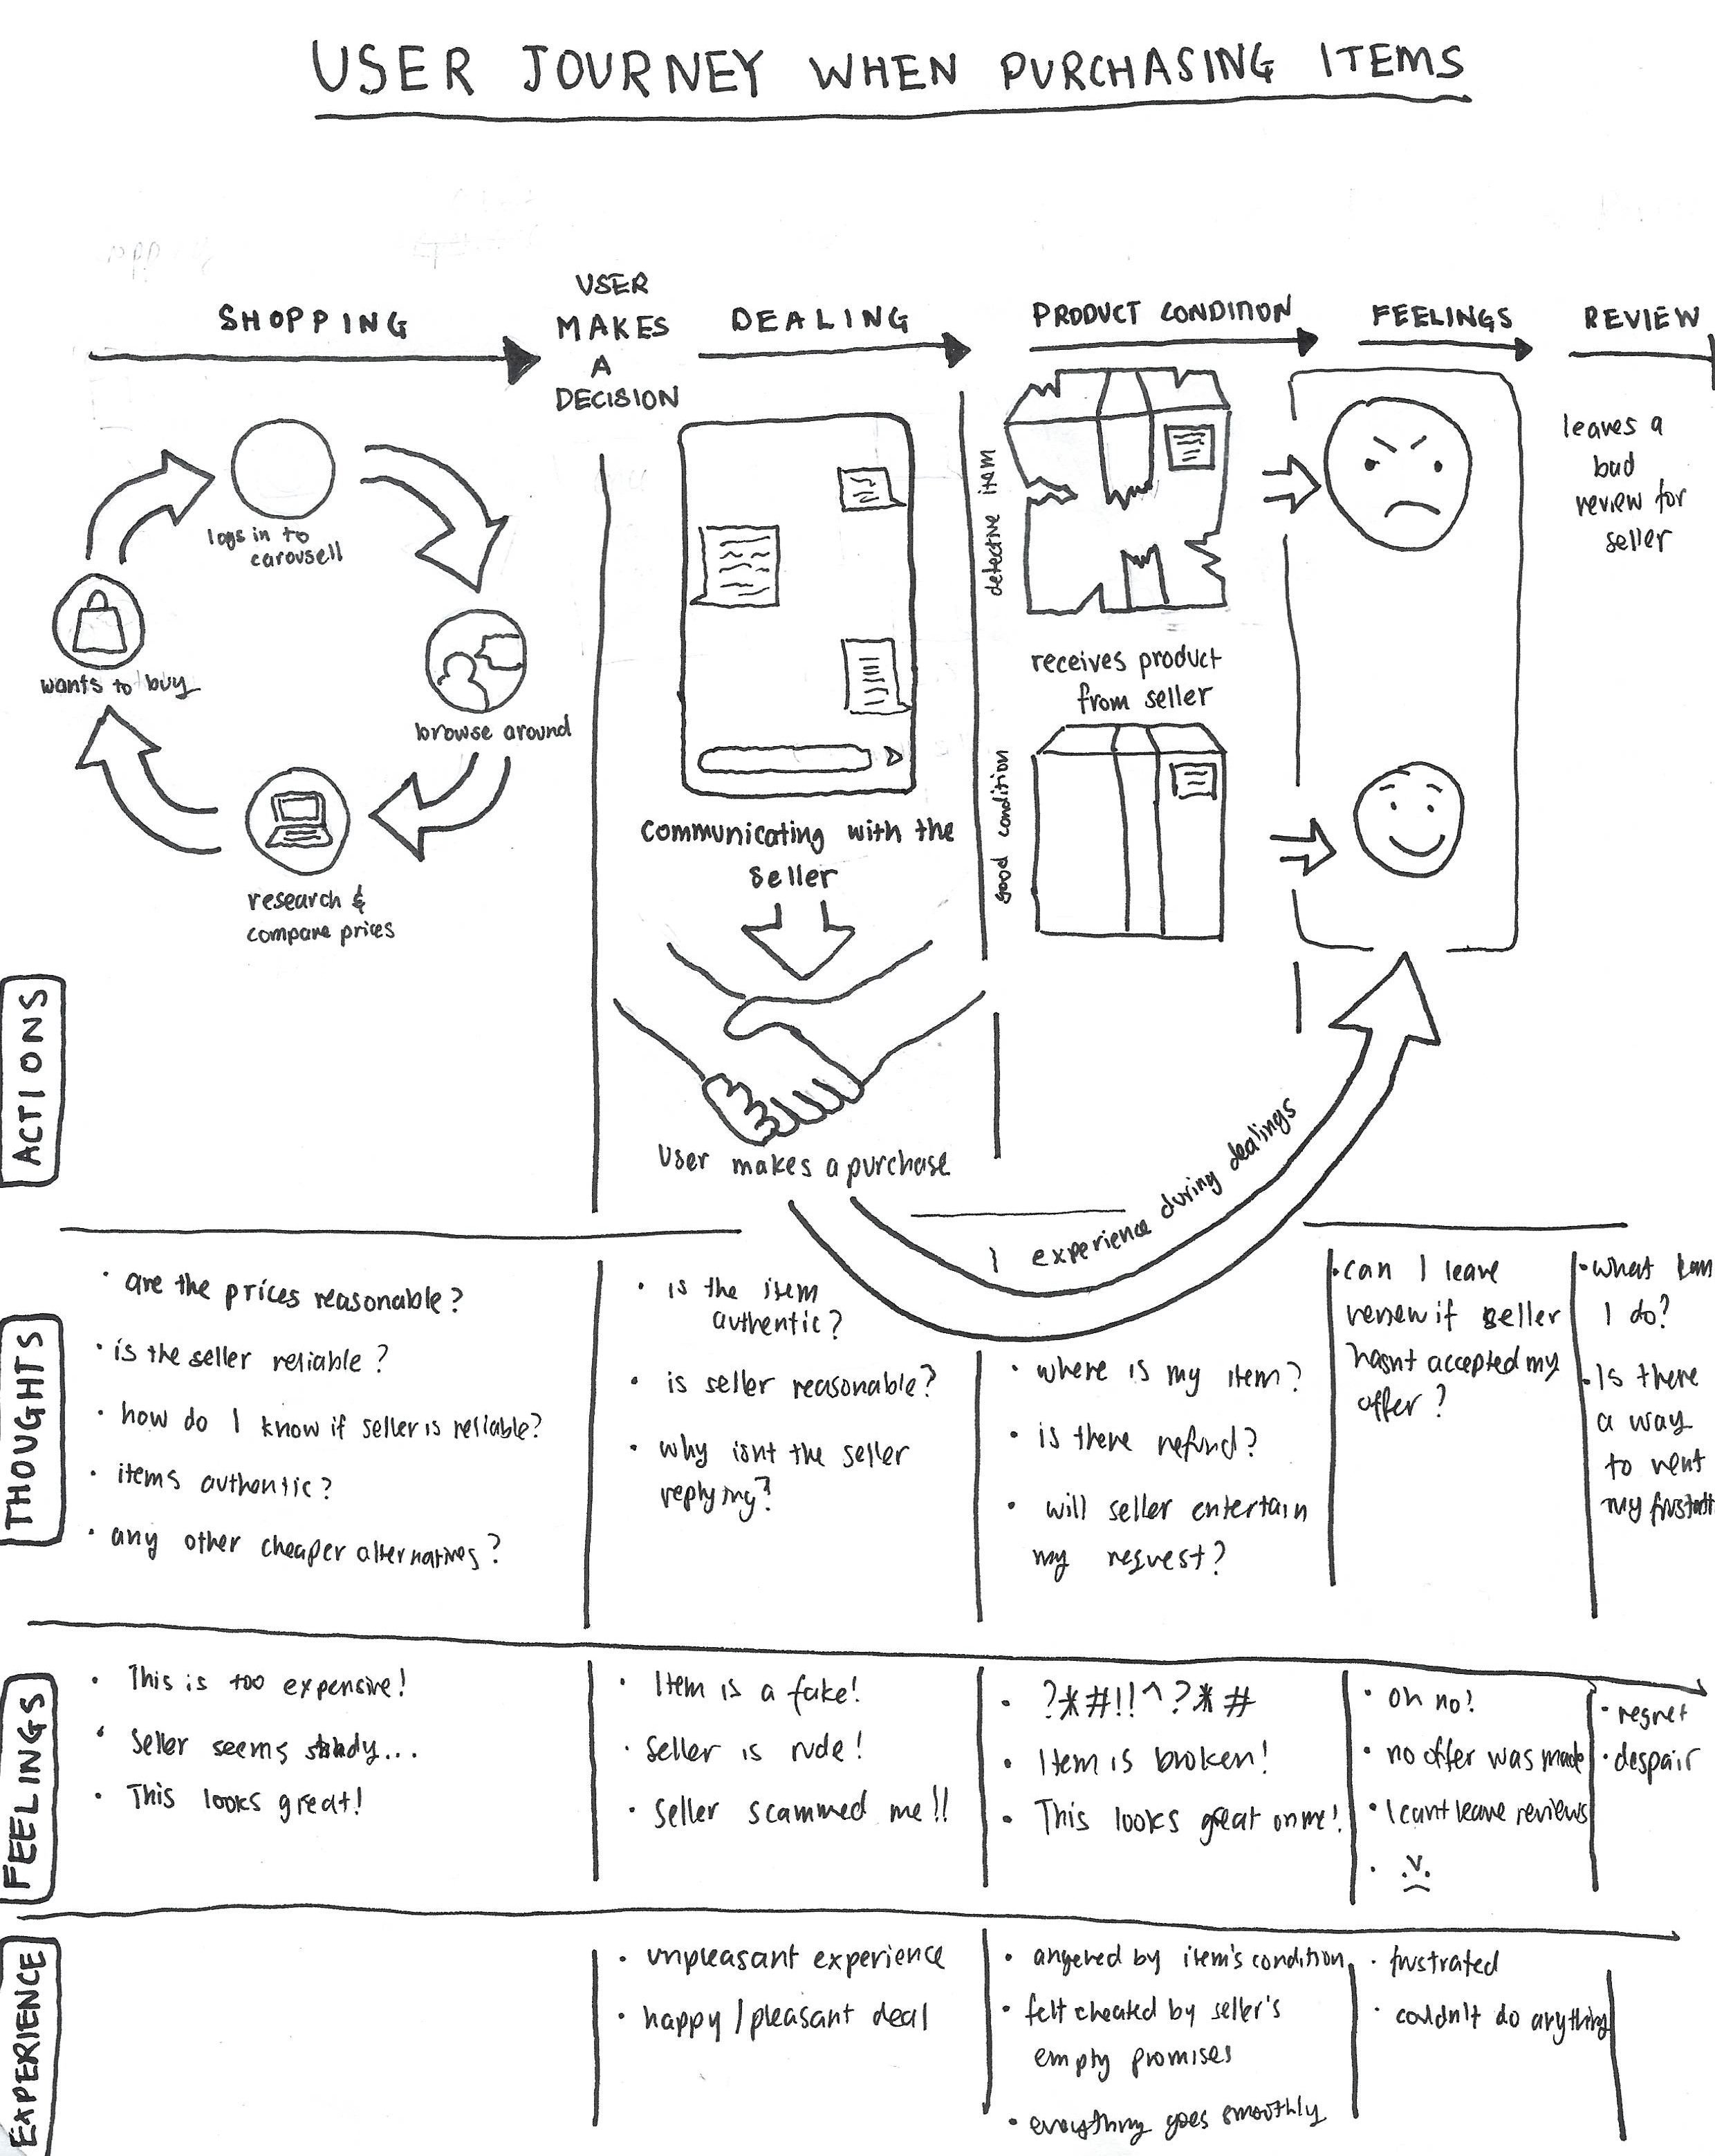 USER JOURNEY WHEN PURCHASING ITEMS
SHOPPING
USER
MAKES
A
DECISION
DEALING
PRODUCT CONDITION
FEELINGS
REVIEW
logs in to
carousell
wants to buy
browse around
research &
compare prices
communicating with the
seller
User makes a purchase
defective item
receives product
from seller
good condition
leaves a
bad
review for
seller
experience during dealings
ACTIONS
THOUGHTS
• are the prices reasonable?
• is the seller reliable?
• how do I know if seller is reliable?
• items authentic?
• any other cheaper alternatives?
• is the item
authentic?
• is seller reasonable?
• why isnt the seller
replying?
• where is my item?
• is there refund?
• will seller entertain
my request?
• can I leave
review if seller
hasnt accepted my
offer?
• what can
I do?
• Is there
a way
to vent
my
FEELINGS
• This is too expensive!
• Seller seems
• This looks great!
• Item is a fake!
• Seller is rude!
• Seller scammed me!!
• ?*#!!^?*#
• Item is broken!
• This looks great on me!
• Oh no!
• no offer was made
• I cant leave reviews
• regret
• despair
EXPERIENCE
• unpleasant experience
• happy / pleasant deal
• angered by item's condition
• felt cheated by seller's
empty promises
• everything goes smoothly
• frustrated
• couldn't do anything